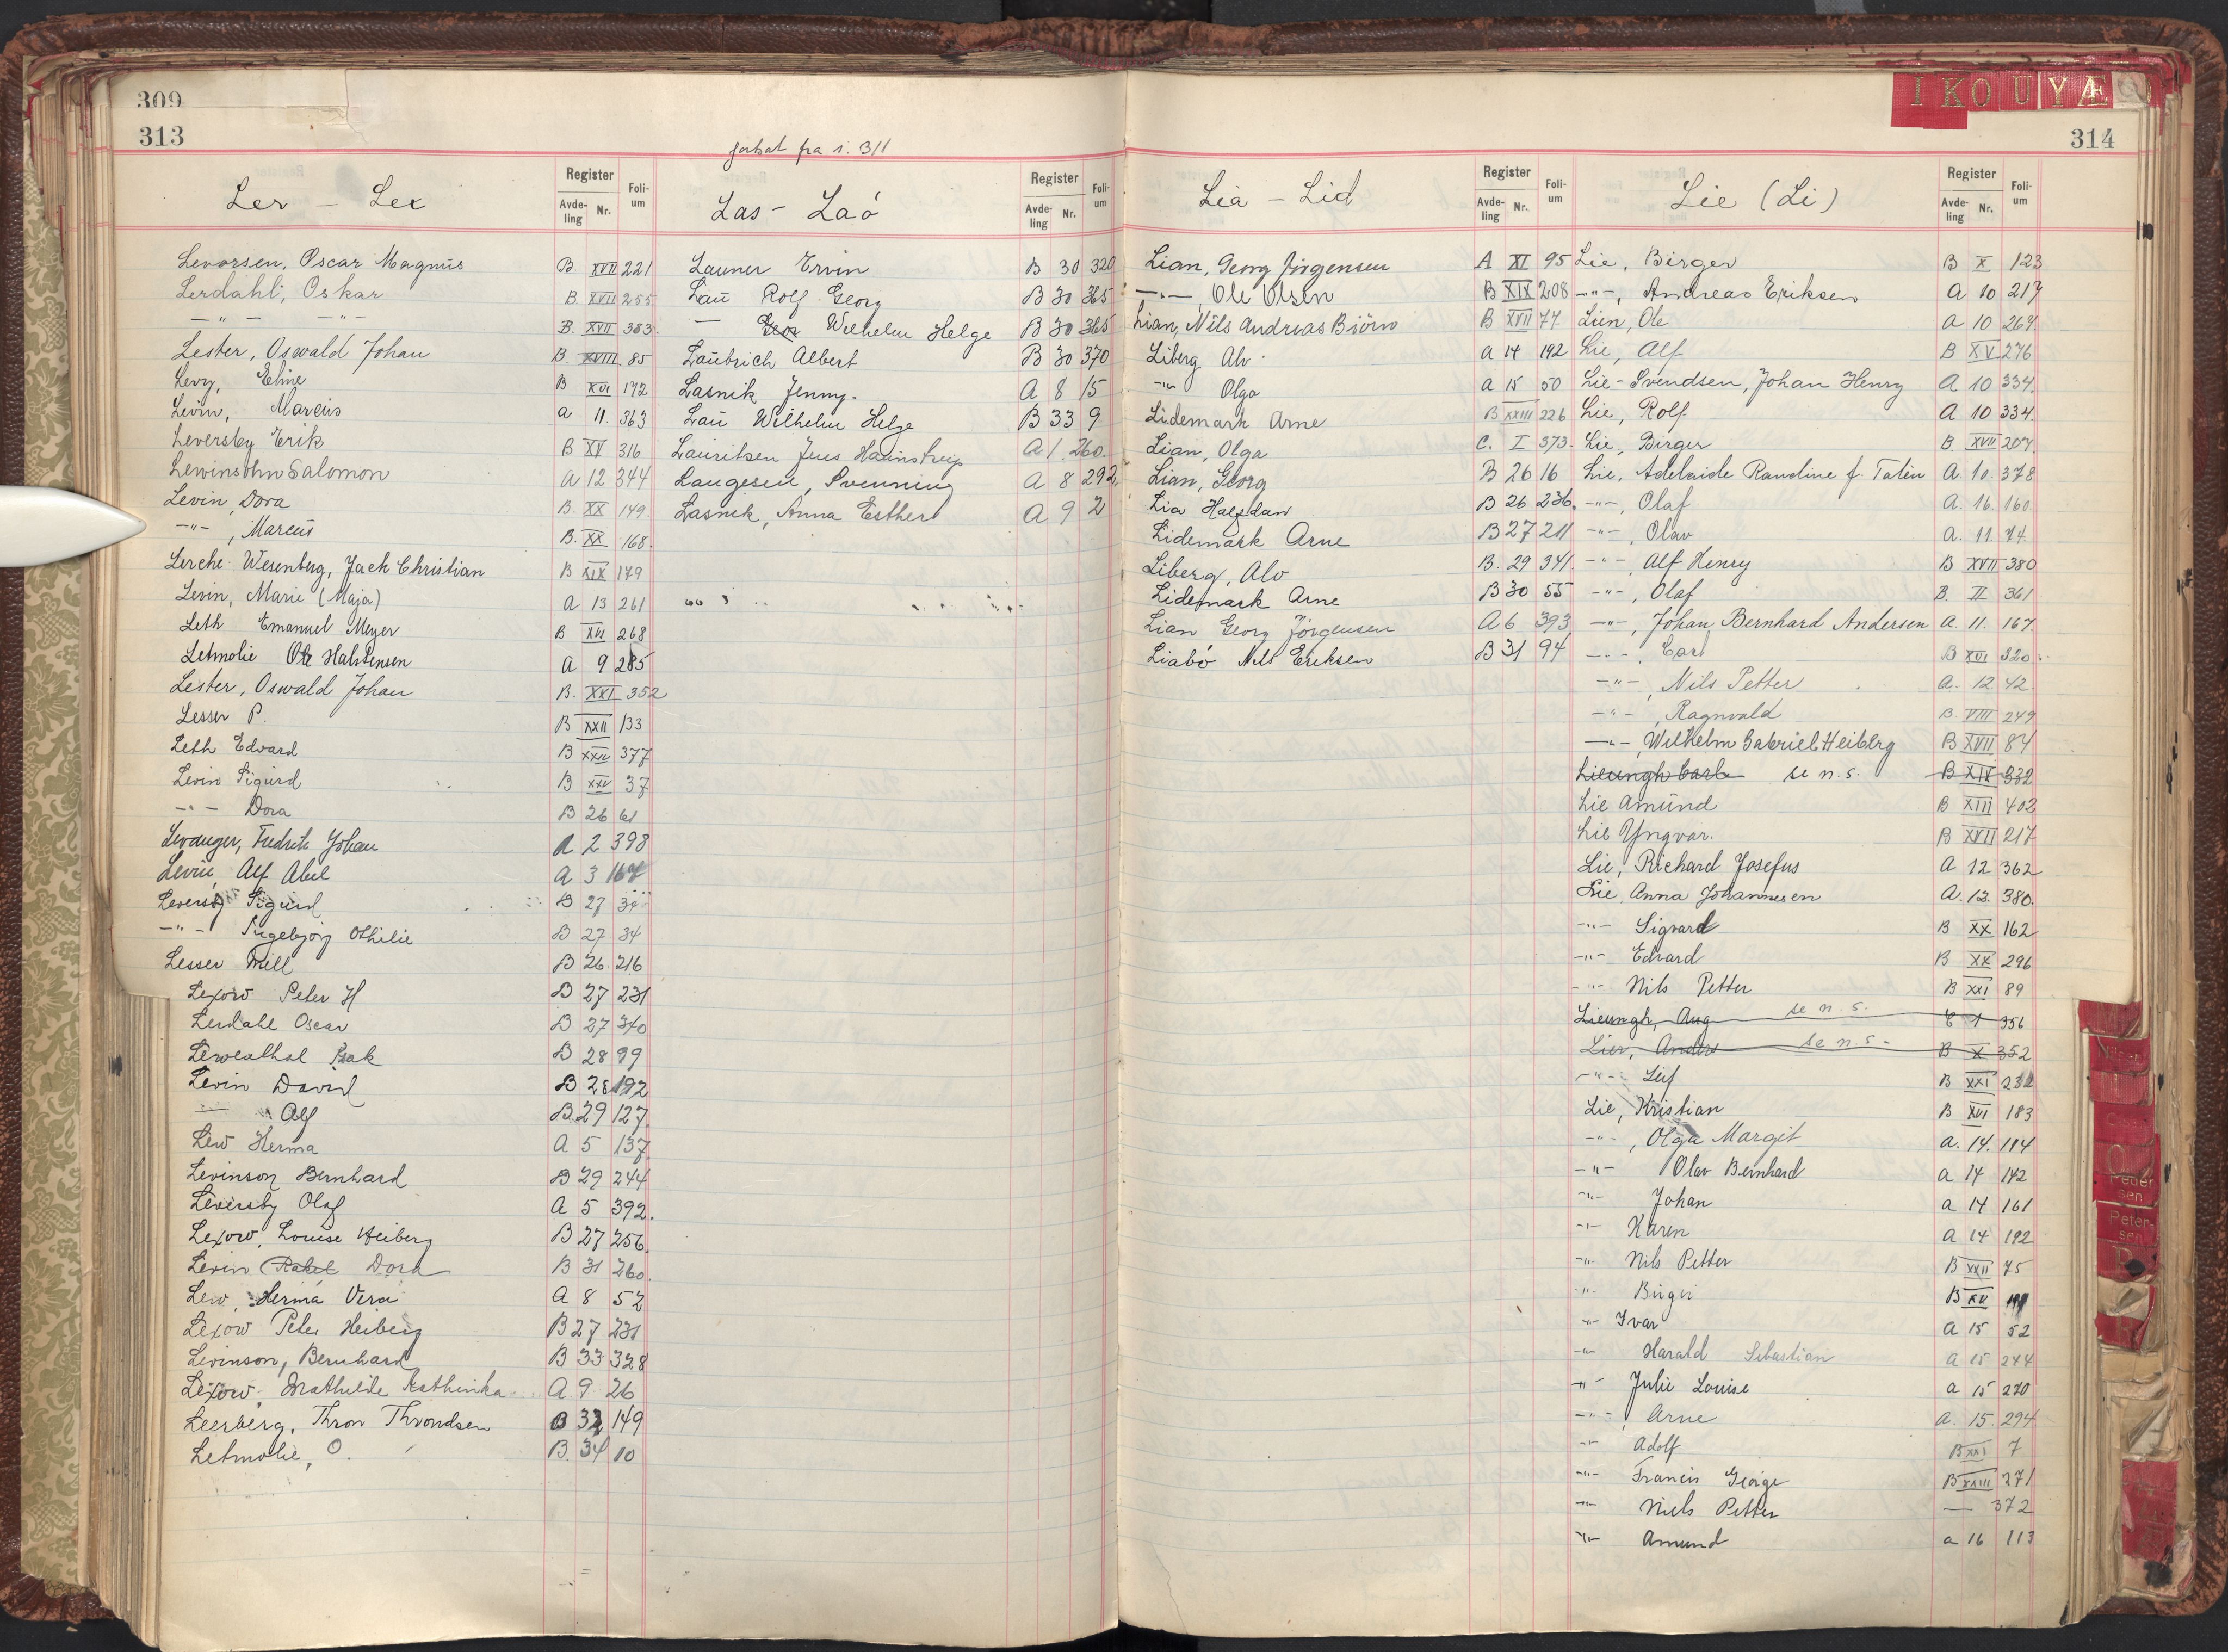 309
313
Ler - Lex
Register
Avde-
ling
Nr.
Foli-
um
Levorsen, Oscar Magnus B. XVII 221
Lerdahl, Oskar B. XVII 255
-"- -"- B. XVII 383.
Lester, Oswald Johan B. XVIII 85
Levy, Eline B XVI 172
Levin, Marcus a 11. 363
Leversby Erik B XV 316
Lewinsohn Salomon a 12 344
Levin, Dora B. XX 149
-"-, Marcus B. XX 168.
Lerche-Wesenberg, Jack Christian B XIX 179
Levin, Marie (Maja) A 13 261
Leth Emanuel Meyer B XVI 268
Letmolie Ole Halstensen A 9 285
Lester, Oswald Johan B. XXI 352
Lesser P. B XXII 133
Leth Edvard B XXIV 377
Levin Sigurd B XXV 37
-"- Dora B 26 61
Levanger, Fredrik Johan A 2 398
Levin, Alf Abel A 3 167
Leversby Sigurd B 27 34
-"- Ingebjørg Othilie B 27 34
Lesser Mill B 26 216
Lexow Peter H B 27 231
Lerdahl Oscar B 27 340
Lewenthal Isak B 28 99
Levin David B 28 192
— Alf B. 29 127.
Lew Herma A 5 137
Levinson Bernhard B 29 244
Leversby Olaf A 5 392.
Lexow, Louise Heiberg B 27 256.
Levin Rakel Dora B 31 260.
Lew, Herma Vera A 8 52
Lexow Peter Heiberg B 27 231
Levinson, Bernhard B 33 328
Lexow, Mathilde Kathinka A 9 26
Leerberg, Thron Throndsen B 32 149
Letmolie, O. B. 34 10
fortsat fra s. 311
Las - Laó
Register
Avde-
ling
Nr.
Foli-
um
Launer Ervin B 30 320
Lau Rolf Georg B 30 365
— Wilhelm Helge B 30 365
Laubrich Albert B 30 370
Lasnik Jenny. A 8 15
Lau Wilhelm Helge B 33 9
Lauritsen Jens Haunstrup A 1. 260.
Laugesen, Svenning A 8 292
Lasnik, Anna Esther A 9 2
I KO U YÆ
314
Lia - Lid
Register
Avde-
ling
Nr.
Foli-
um
Lian, Georg Jörgensen A XI 95
-"-, Ole Olsen B XIX 208
Lian, Nils Andreas Biörn B XVII 77
Liberg Alv a 14 192
-"- Olga a 15 50
Lidemark Arne B XXIII 226
Lian, Olga C. I 373.
Lian, Georg B 26 16
Lia Halfdan B 26 236.
Lidemark Arne B 27 211
Liberg, Alv B. 29 341.
Lidemark Arne B 30 55
Lian Georg Jörgensen A 6 393
Liabö Nils Eriksen B 31 94
Lie (Li)
Register
Avde-
ling
Nr.
Foli-
um
Lie, Birger B X 123
-"-, Andreas Eriksen A 10 217
Lien, Ole A 10 264.
Lie, Alf B XV 276
Lie-Svendsen, Johan Henry A 10 334.
Lie, Rolf A 10 334.
Lie, Birger B. XVII 207.
Lie, Adelaide Randine f. Talén A. 10. 378
-"-, Olaf A. 16. 160
-"-, Olav a. 11. 74.
-"-, Alf Henry B XVII 380
-"-, Olaf B. II 361
-"-, Johan Bernhard Andersen A. 11. 167.
-"-, Carl B XVI 320
-"-, Nils Petter A. 12 42.
-"-, Ragnvald B. VIII 249
-"-, Wilhelm Gabriel Heiberg B XVII 84
Lieungh Carl se n. s. B XIX 332
Lie Amund B XIII 402
Lie Yngvar. B XVII 217
Lie, Richard Josefus A 12 362
Lie, Anna Johannesen A. 12. 380.
-"- Sigvard B XX 162
-"- Edvard B XX 296
-"- Nils Petter B XXI 89
Lieungh, Aug se n. s. C 1 356
Lier, Anders se n. s. B X 352
-"- Leif B XXI 232
Lie, Kristian B XVI 183
-"-, Olga Margit a. 14. 114
-"- Olav Bernhard a 14 142
-"- Johan a 14 161
-"- Karen a 14 192
-"- Nils Petter B XXII 75
-"- Birger B XV
-"- Ivar a 15 52
-"- Harald Sebastian a 15 244
-"- Julie Louise a 15 270
-"-, Arne a. 15. 294
-"- Adolf B XXI 7
-"- Francis George B XXIII 271
-"- Niels Petter — 372
-"- Amund a 16 113
Nilsen
Peder
sen
Peter-
sen